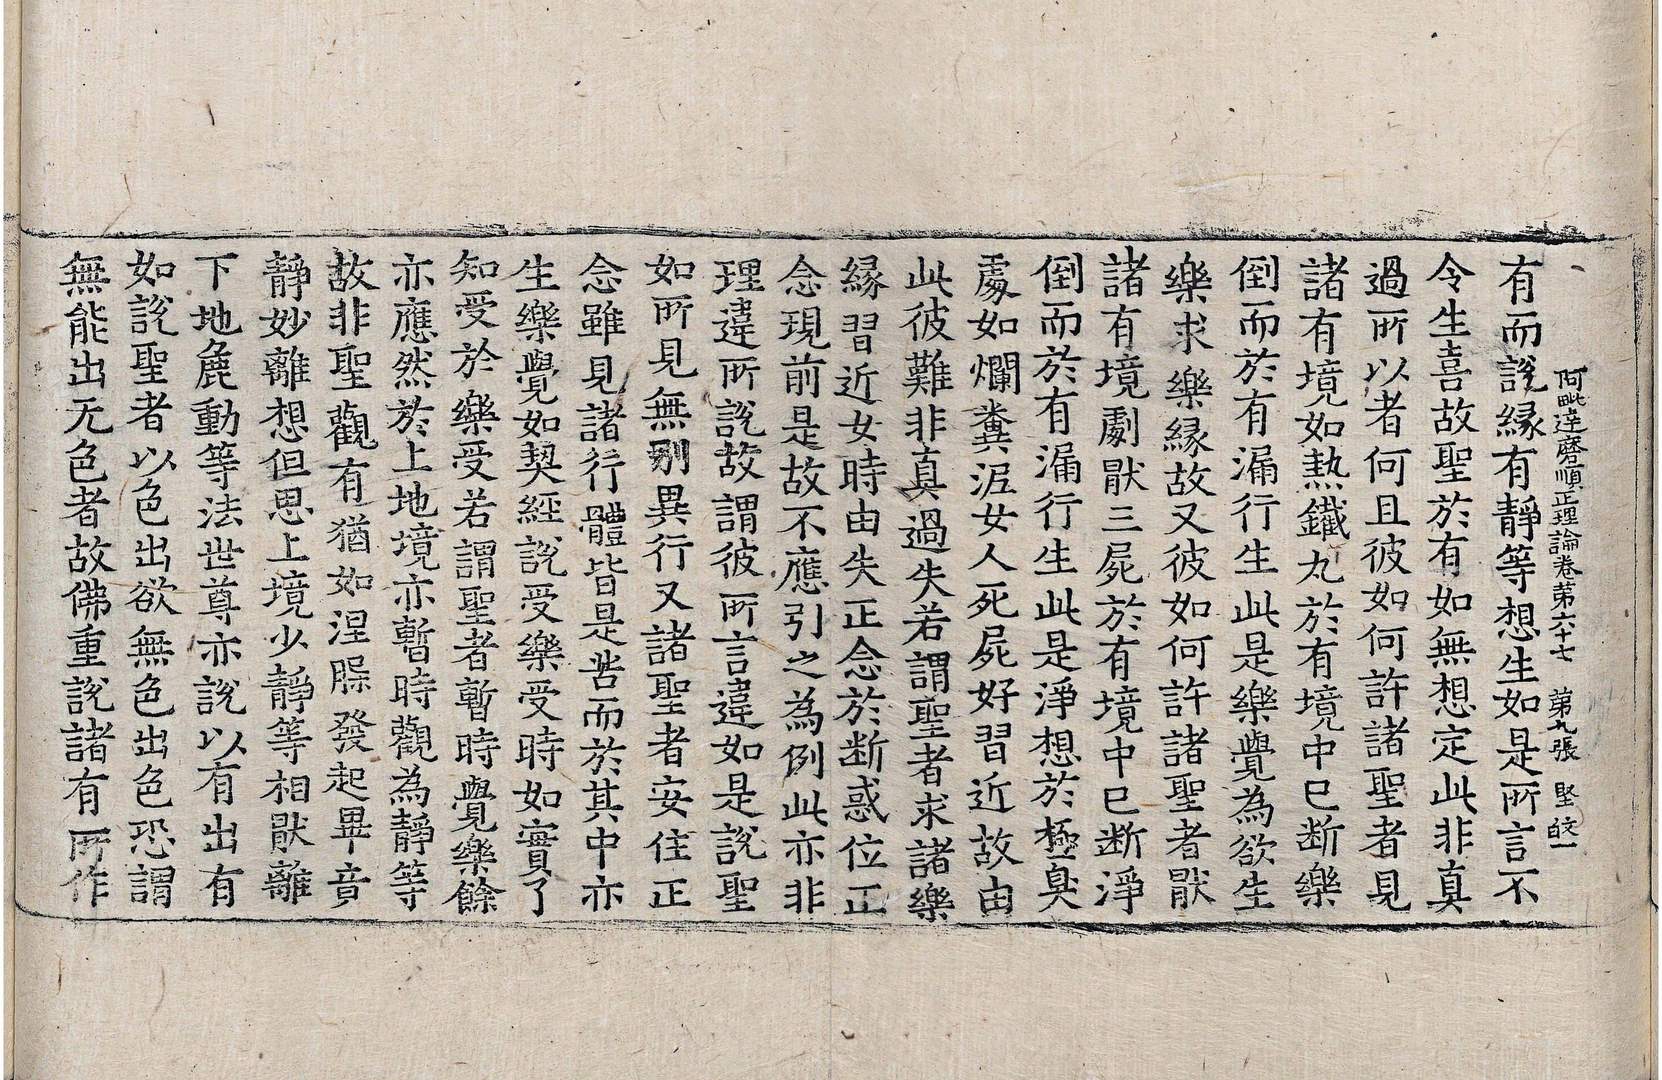 阿毗達磨順正理論卷第六十七　第九張　堅
有而說緣有靜等想生如是所言不
令生喜故聖於有如無想定此非真
過所以者何且彼如何許諸聖者見
諸有境如熱鐵丸於有境中已斷樂
倒而於有漏行生此是樂覺為欲生
樂求樂緣故又彼如何許諸聖者猒
諸有境劇猒三屍於有境中已斷淨
倒而於有漏行生此是淨想於極臭
處如爛糞泥女人死屍好習近故由
此彼難非真過失若謂聖者求諸樂
緣習近女時由失正念於斷惑位正
念現前是故不應引之為例此亦非
理違所說故謂彼所言違如是說聖
如所見無別異行又諸聖者安住正
念雖見諸行體皆是苦而於其中亦
生樂覺如契經說受樂受時如實了
知受於樂受若謂聖者暫時覺樂餘
亦應然於上地境亦暫時觀為靜等
故非聖觀有猶如涅槃發起畢竟
靜妙離想但思上境少靜等相猒離
下地麁動等法世尊亦說以有出有
如說聖者以色出欲無色出色恐謂
無能出无色者故佛重說諸有所作